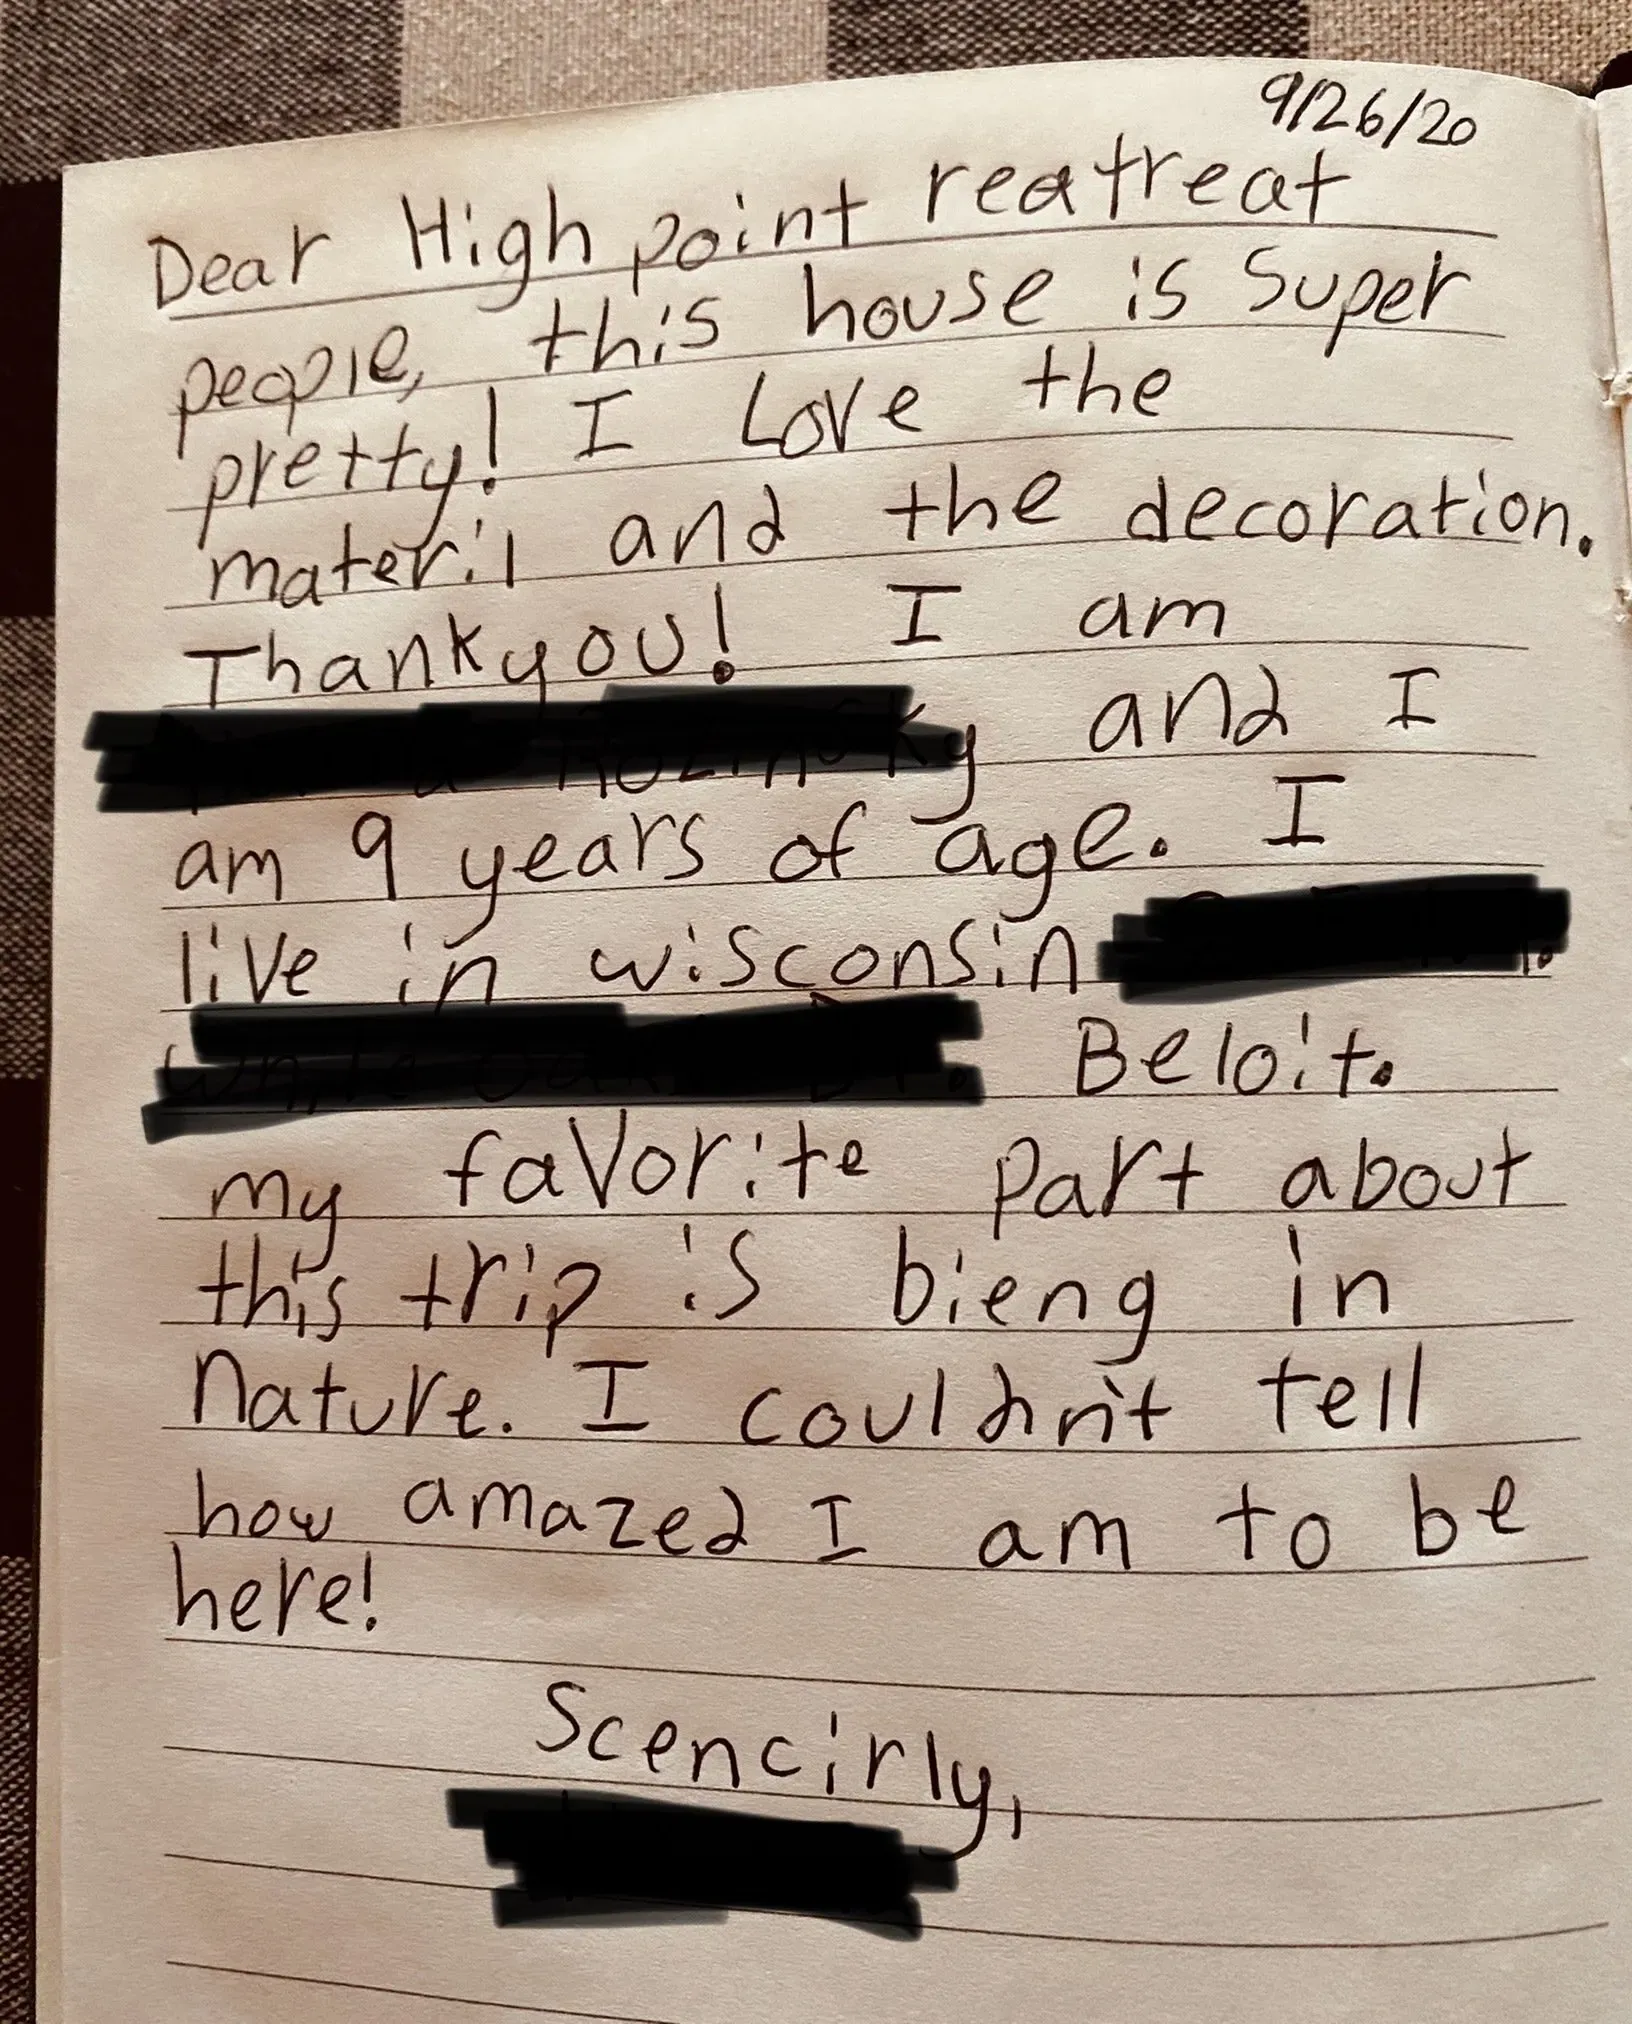 9/26/20
Dear High point reatreat
people, this house is Super
pretty! I Love the
materil and the decoration.
Thankyou! I am
and I
am 9 years of age. I
live in wisconsin
Beloit.
my favorite part about
this trip is bieng in
Nature. I couldn't tell
how amazed I am to be
here!
Scencirly,